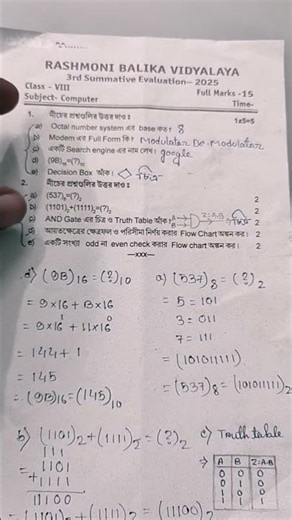 RASHMONI BALIKA VIDYALAYA
3rd Summative Evaluation– 2025
Class - VIII
Full Marks -15
Subject- Computer
Time-
1. নীচের প্রশ্নগুলির উত্তর দাও ঃ 1x5=5
a) Octal number system এর base কত ? 8
b) Modem এর Full Form কি ? Modulator De-modulator
c) একটি Search engine এর নাম লেখ। google
d) (9B)₁₆=(?)₁₀
e) Decision Box আঁক। চিত্র
2. নীচের প্রশ্নগুলির উত্তর দাও ঃ
a) (537)₈=(?)₂ 2
b) (1101)₂+(1111)₂=(?)₂ 2
c) AND Gate এর চিত্র ও Truth Table আঁক। A B Z=A·B চিত্র 2
d) আয়তক্ষেত্রের ক্ষেত্রফল ও পরিসীমা নির্ণয় করার Flow Chart অঙ্কন কর। 2
e) একটি সংখ্যা odd না even check করার Flow chart অঙ্কন কর। 2
—xxx—
d) (9B)16 = (?)10
= 9×16 + B×16
= 9×16¹ + 11×16⁰
= 144 + 1
= 145
∴ (9B)16 = (145)10
a) (537)8 = (?)2
= 5 = 101
3 = 011
7 = 111
= (101011111)
= (537)8 = (101011111)2
b) (1101)2 + (1111)2 = (?)2
111
= 1101
+ 1111
11100
= (1101)2 + (1111)2 = (11100)2
c) Truth table
⇒ A B Z=A·B
0 0 0
0 1 0
1 0 0
1 1 1